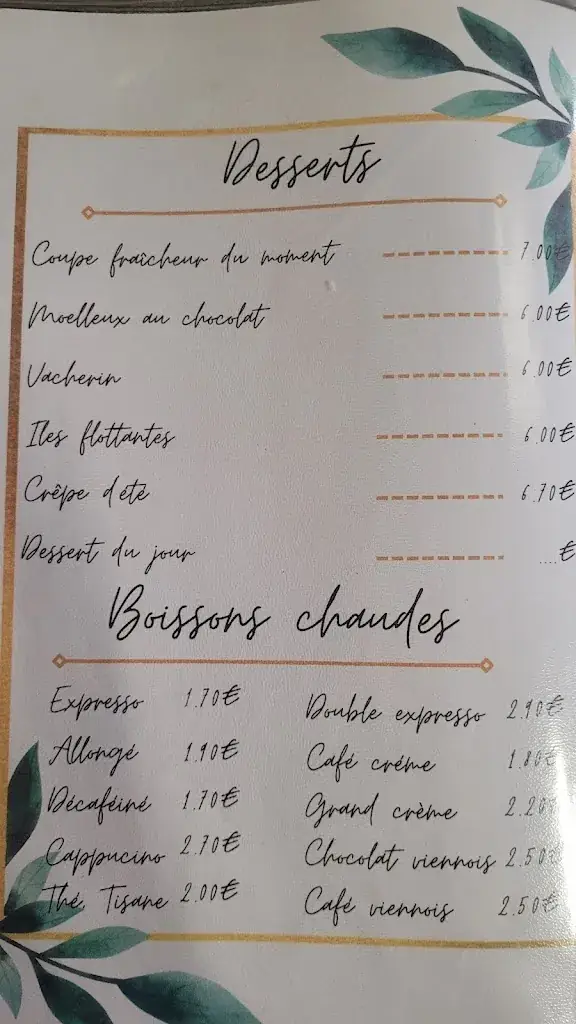 Desserts
Coupe fraîcheur du moment 7.00€
Moelleux au chocolat 6.00€
Vacherin 6.00€
Iles flottantes 6.00€
Crêpe d'été 6.70€
Dessert du jour ....€
Boissons chaudes
Expresso 1.70€
Allongé 1.90€
Décaféiné 1.70€
Cappucino 2.70€
Thé, Tisane 2.00€
Double expresso 2.90€
Café créme 1.80€
Grand crème 2.20€
Chocolat viennois 2.50€
Café viennois 2.50€